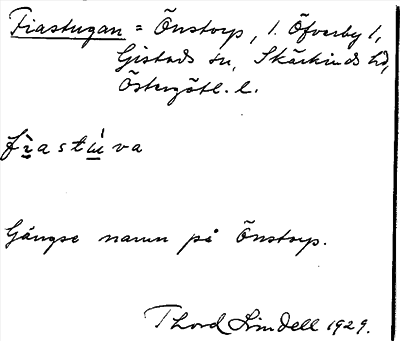 Fiastugan = Önstorp, 1. Öfverby 1,
Gistads sn, Skärkinds hd,
Östergötl. l.
fi̱̇̀asti̱ú̱va
Gängse namn på Önstorp.
Thord Lindell 1929.